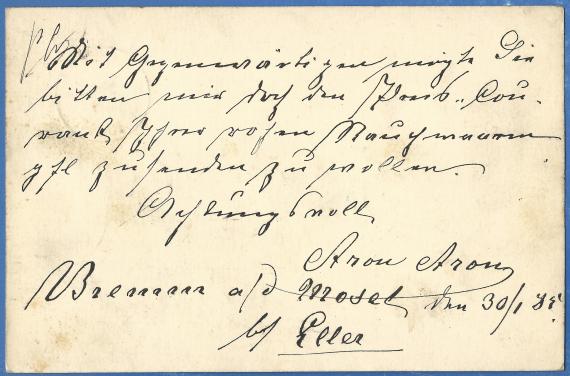 Mit Gegenwärtigen mögte Sie
bitten mir doch den Preis-Cou-
rant Ihrer rohen Rauchwaaren
gfl zusenden zu wollen.
Achtungsvoll
Aron Aron
Bremm a/d Mosel den 30/1 85
b/ Eller